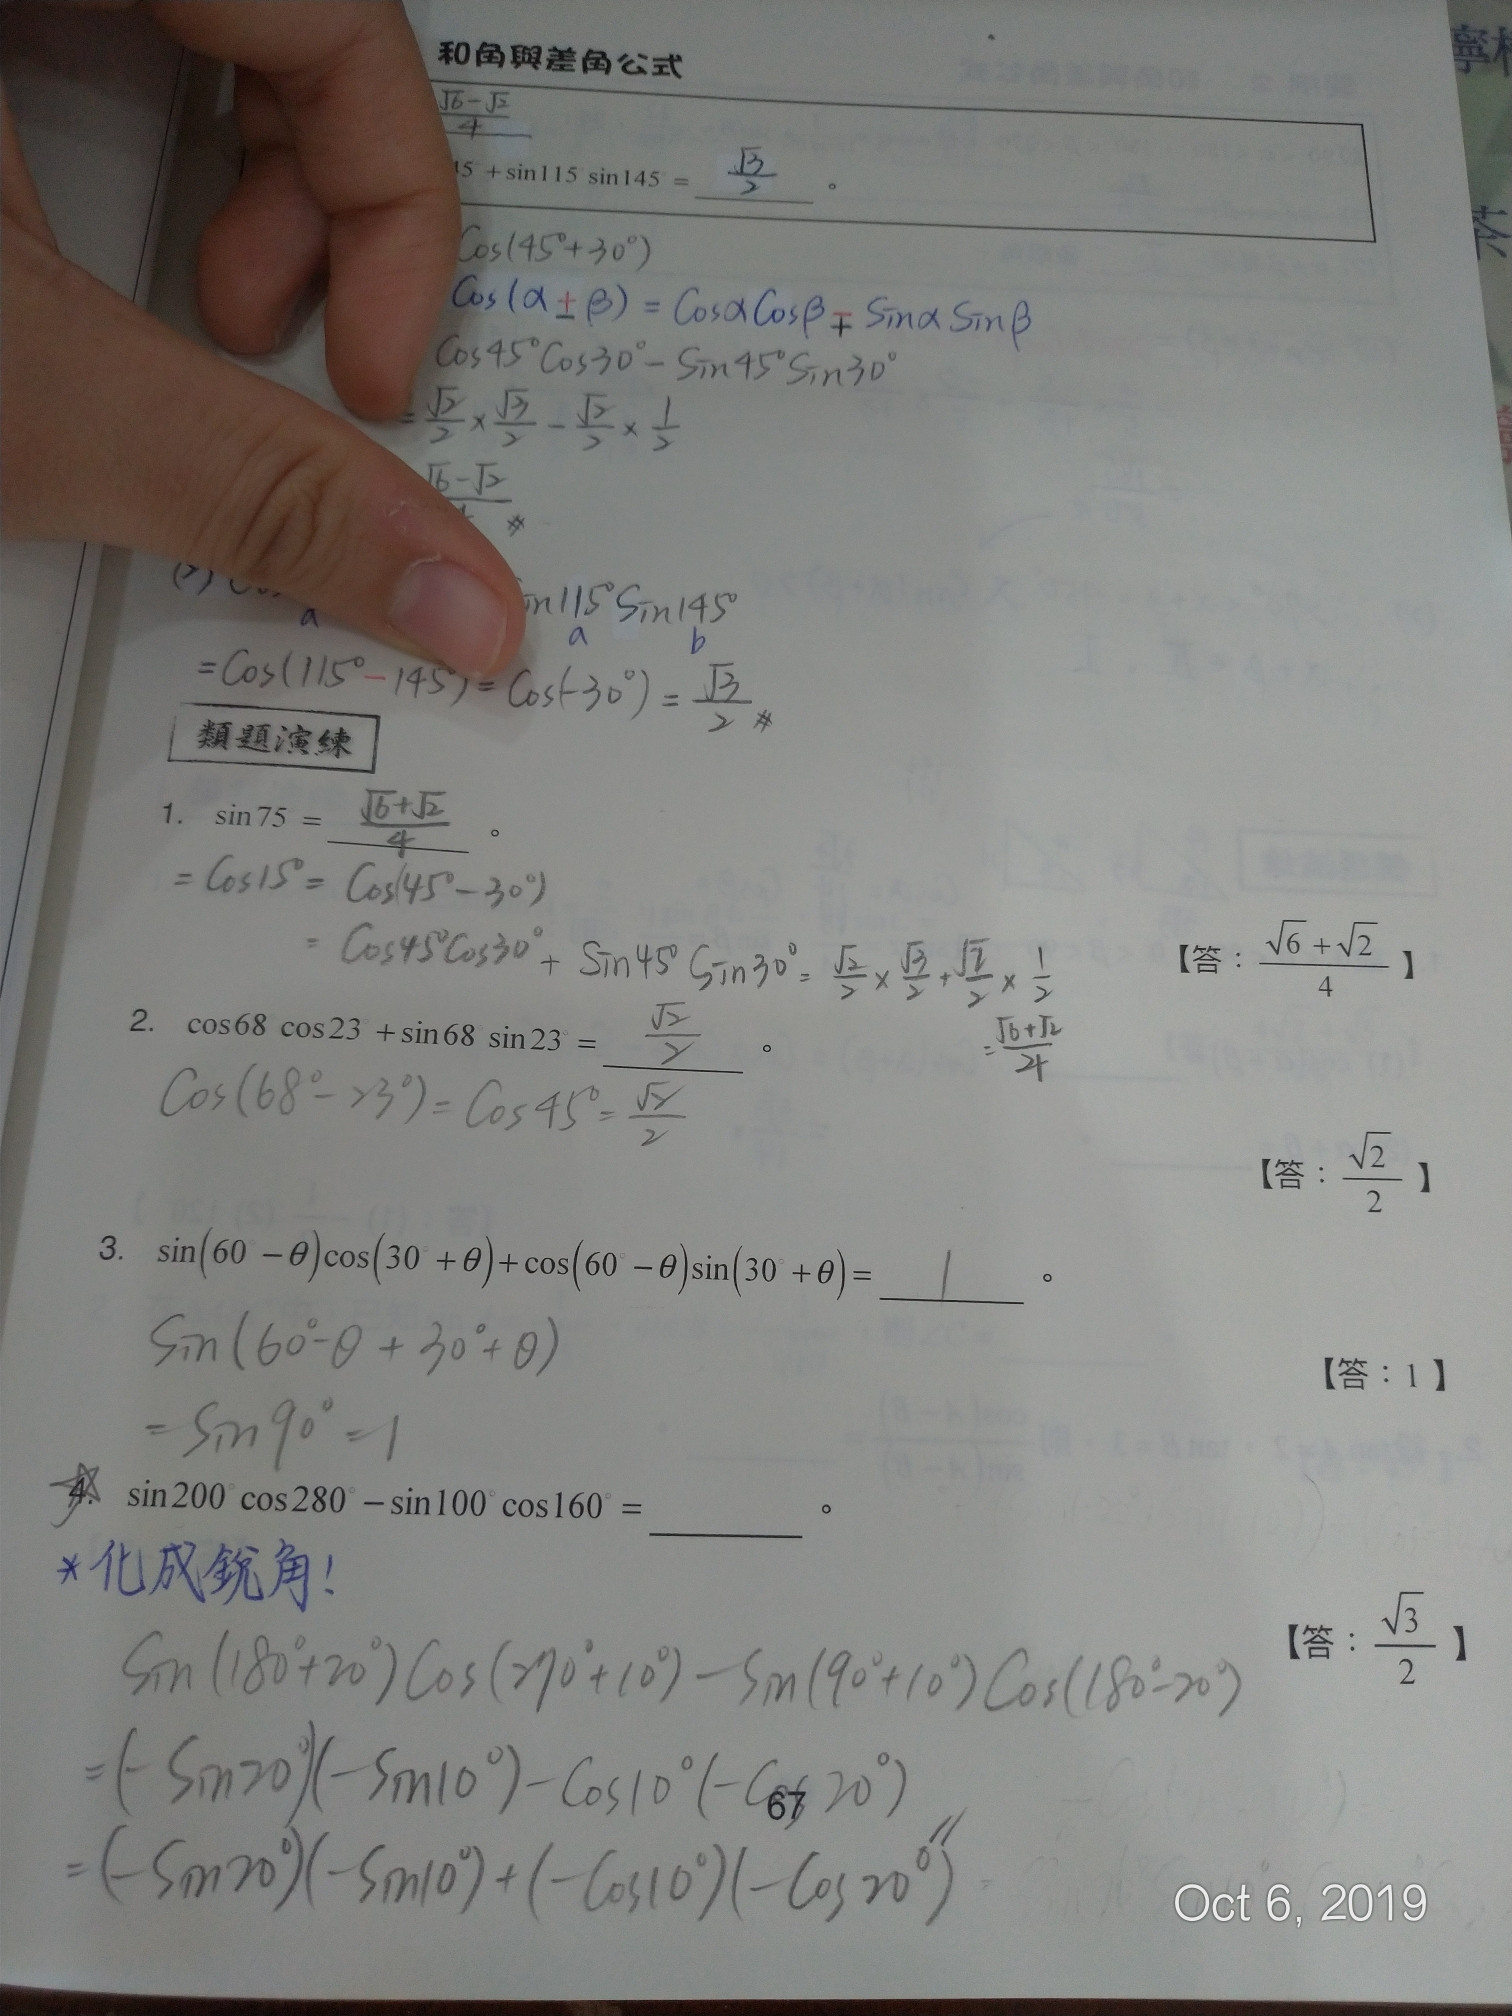 和角與差角公式
√6-√2/4
45°+sin115°sin145°= √3/2 。
Cos(45°+30°)
Cos(α±β)=CosαCosβ∓SinαSinβ
Cos45°Cos30°-Sin45°Sin30°
=√2/2×√3/2-√2/2×1/2
√6-√2/4 *
(2) Cos in115°Sin145°
a a b
=Cos(115°-145°)=Cos(-30°)=√3/2 *
類題演練
1. sin75°= √6+√2/4 。
=Cos15°=Cos(45°-30°)
=Cos45°Cos30°+Sin45°Sin30°=√2/2×√3/2+√2/2×1/2
【答:√6+√2/4】
2. cos68°cos23°+sin68°sin23°= √2/2 。
=√6+√2/4
Cos(68°-23°)=Cos45°=√2/2
【答:√2/2】
3. sin(60°-θ)cos(30°+θ)+cos(60°-θ)sin(30°+θ)= 1 。
Sin(60°-θ+30°+θ)
【答:1】
=Sin90°=1
4. sin200°cos280°-sin100°cos160°= 。
*化成銳角!
【答:√3/2】
Sin(180°+20°)Cos(270°+10°)-Sin(90°+10°)Cos(180°-20°)
=(-Sin20°)(-Sin10°)-Cos10°(-Cos20°)
67
=(-Sin20°)(-Sin10°)+(-Cos10°)(-Cos20°)
Oct 6, 2019